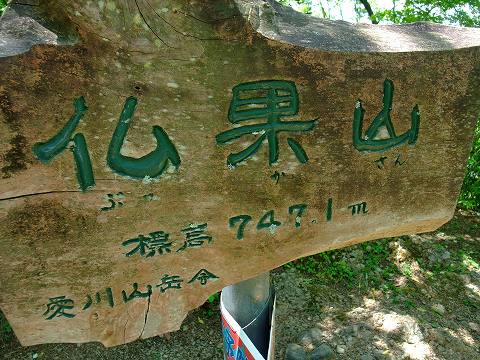 仏果山
ぶっ か さん
標高 747.1m
愛川山岳会